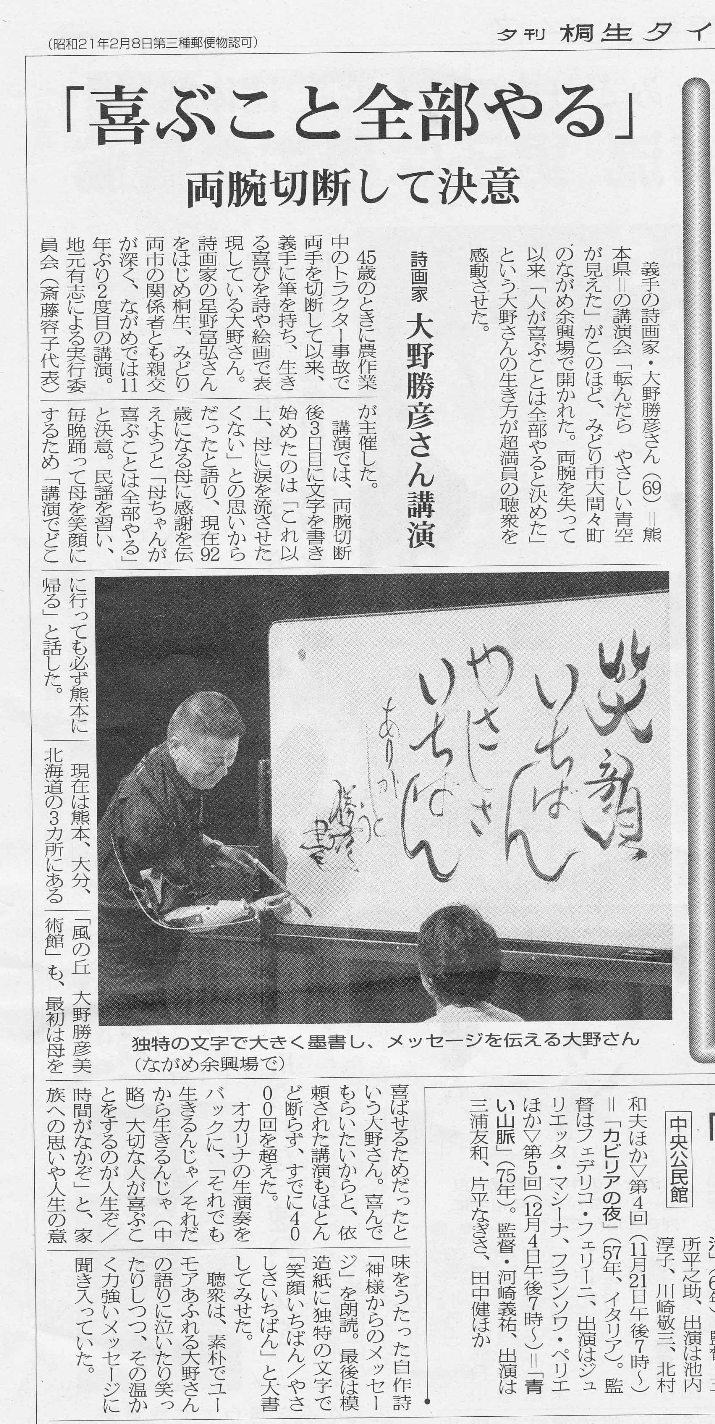 (昭和21年2月8日第三種郵便物認可)
夕刊 桐生タイ
「喜ぶこと全部やる」
両腕切断して決意
義手の詩画家・大野勝彦さん(69)=熊
本県=の講演会「転んだら やさしい青空
が見えた」がこのほど、みどり市大間々町
のながめ余興場で開かれた。両腕を失って
以来「人が喜ぶことは全部やると決めた」
という大野さんの生き方が超満員の聴衆を
感動させた。
詩画家 大野勝彦さん講演
45歳のときに農作業
中のトラクター事故で
両手を切断して以来、
義手に筆を持ち、生き
る喜びを詩や絵画で表
現している大野さん。
詩画家の星野富弘さん
をはじめ桐生、みどり
両市の関係者とも親交
が深く、ながめでは11
年ぶり2度目の講演。
地元有志による実行委
員会(斎藤容子代表)
が主催した。
講演では、両腕切断
後3日目に文字を書き
始めたのは「これ以
上、母に涙を流させた
くない」との思いから
だったと語り、現在92
歳になる母に感謝を伝
えようと「母ちゃんが
喜ぶことは全部やる」
と決意。民謡を習い、
毎晩踊って母を笑顔に
するため「講演でどこ
に行っても必ず熊本に
帰る」と話した。
現在は熊本、大分、
北海道の3カ所にある
「風の丘 大野勝彦美
術館」も、最初は母を
笑顔
いちばん
やさしさ
いちばん
ありがとう
勝彦
書
独特の文字で大きく墨書し、メッセージを伝える大野さん
(ながめ余興場で)
喜ばせるためだったと
いう大野さん。喜んで
もらいたいからと、依
頼された講演もほとん
ど断らず、すでに40
00回を超えた。
オカリナの生演奏を
バックに、「それでも
生きるんじゃ/それだ
から生きるんじゃ(中
略)大切な人が喜ぶこ
とをするのが人生ぞ/
時間がなかぞ」と、家
族への思いや人生の意
味をうたった自作詩
「神様からのメッセー
ジ」を朗読。最後は模
造紙に独特の文字で
「笑顔いちばん/やさ
しさいちばん」と大書
してみせた。
聴衆は、素朴でユー
モアあふれる大野さん
の語りに泣いたり笑っ
たりしつつ、その温か
く力強いメッセージに
聞き入っていた。
中央公民館
所平之助、出演は池内
淳子、川崎敬三、北村
和夫ほか▽第4回(11月21日午後7時〜)
=「カビリアの夜」(57年、イタリア)。監
督はフェデリコ・フェリーニ、出演はジュ
リエッタ・マシーナ、フランソワ・ペリエ
ほか▽第5回(12月4日午後7時〜)=「青
い山脈」(75年)。監督・河崎義祐、出演は
三浦友和、片平なぎさ、田中健ほか